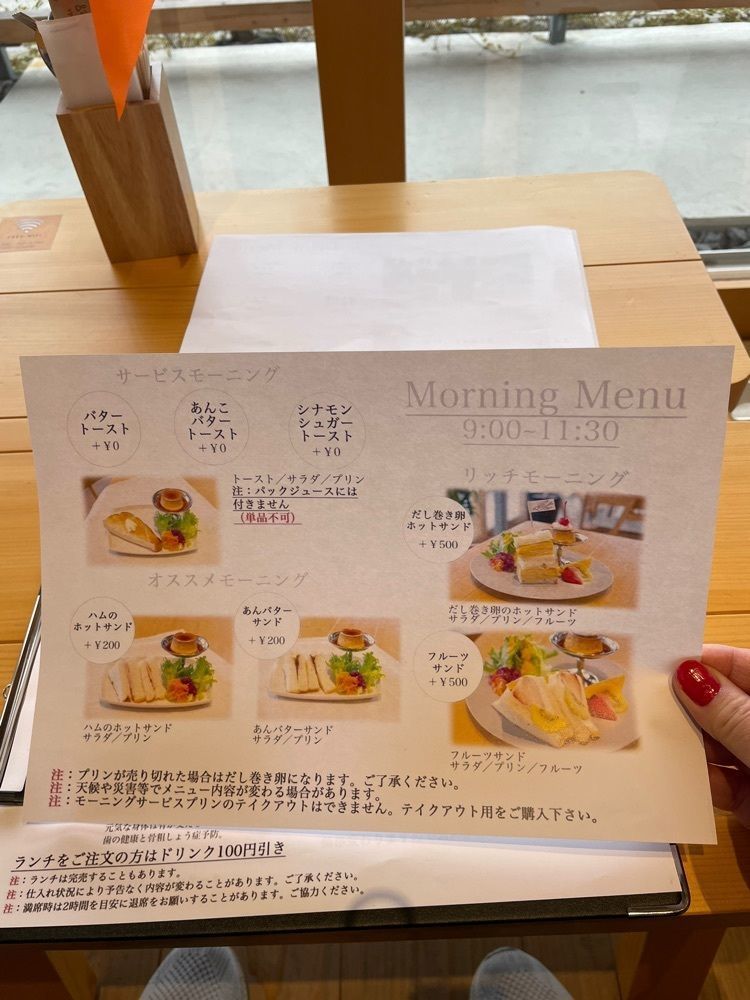 サービスモーニング
バター
トースト
+¥0
あんこ
バター
トースト
+¥0
シナモン
シュガー
トースト
+¥0
トースト／サラダ／プリン
注：パックジュースには
付きません
（単品不可）
オススメモーニング
ハムの
ホットサンド
+¥200
あんバター
サンド
+¥200
ハムのホットサンド
サラダ／プリン
あんバターサンド
サラダ／プリン
Morning Menu
9:00~11:30
リッチモーニング
だし巻き卵
ホットサンド
+¥500
だし巻き卵のホットサンド
サラダ／プリン／フルーツ
フルーツ
サンド
+¥500
フルーツサンド
サラダ／プリン／フルーツ
注：プリンが売り切れた場合はだし巻き卵になります。ご了承ください。
注：天候や災害等でメニュー内容が変わる場合があります。
注：モーニングサービスプリンのテイクアウトはできません。テイクアウト用をご購入下さい。
歯の健康と骨粗しょう症予防。
ランチをご注文の方はドリンク100円引き
注：ランチは完売することもあります。
注：仕入れ状況により予告なく内容が変わることがあります。ご了承ください。
注：満席時は2時間を目安に退席をお願いすることがあります。ご協力ください。